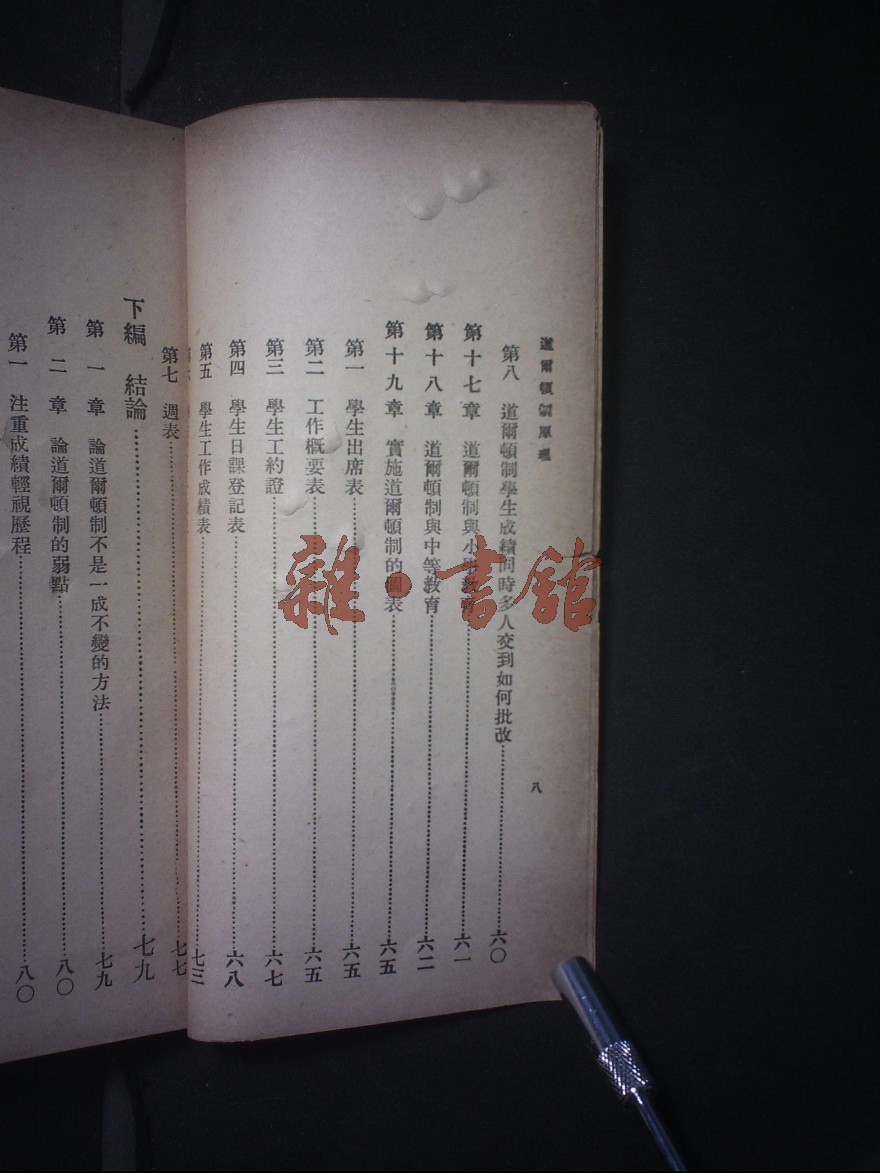 道爾頓制原理
第八　道爾頓制學生成績同時多人交到如何批改……六〇
第十七章　道爾頓制與小學教育……六一
第十八章　道爾頓制與中等教育……六二
第十九章　實施道爾頓制的圖表……六五
第一　學生出席表……六五
第二　工作概要表……六五
第三　學生工約證……六七
第四　學生日課登記表……六八
第五　學生工作成績表……七三
八
第七　週表……七七
下編　結論……七九
第一章　論道爾頓制不是一成不變的方法……七九
第二章　論道爾頓制的弱點……八〇
第一　注重成績輕視歷程……八〇
雜·書館